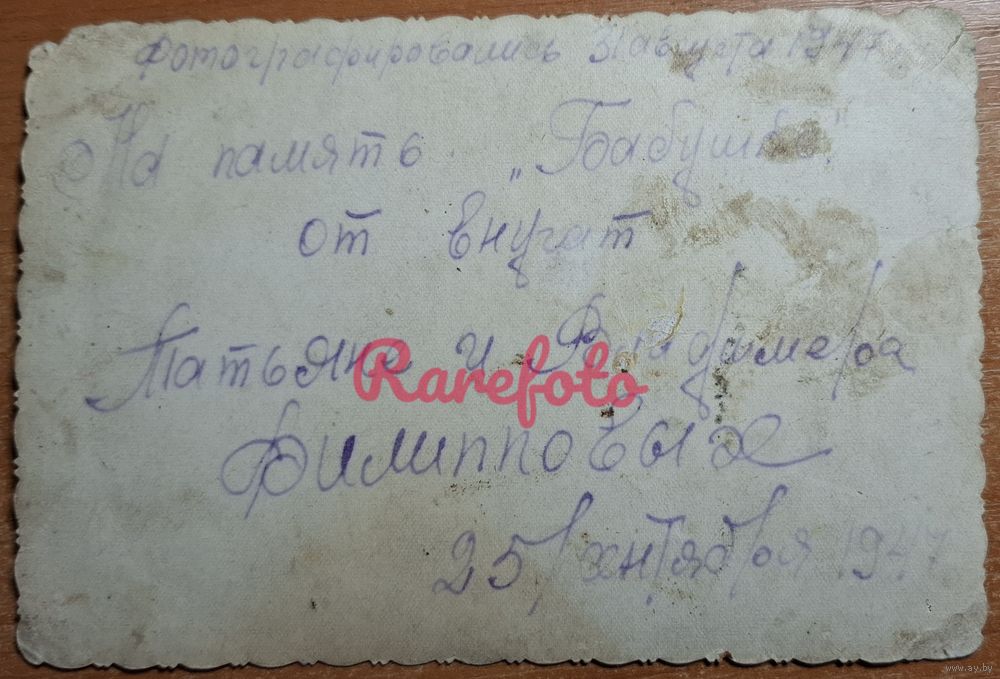 Фотографировались 31 августа 1947
На память „Бабушке"
от внучат
Татьяны и Владимера
Филипповых
25/ 1947
Rarefoto
www.ay.by